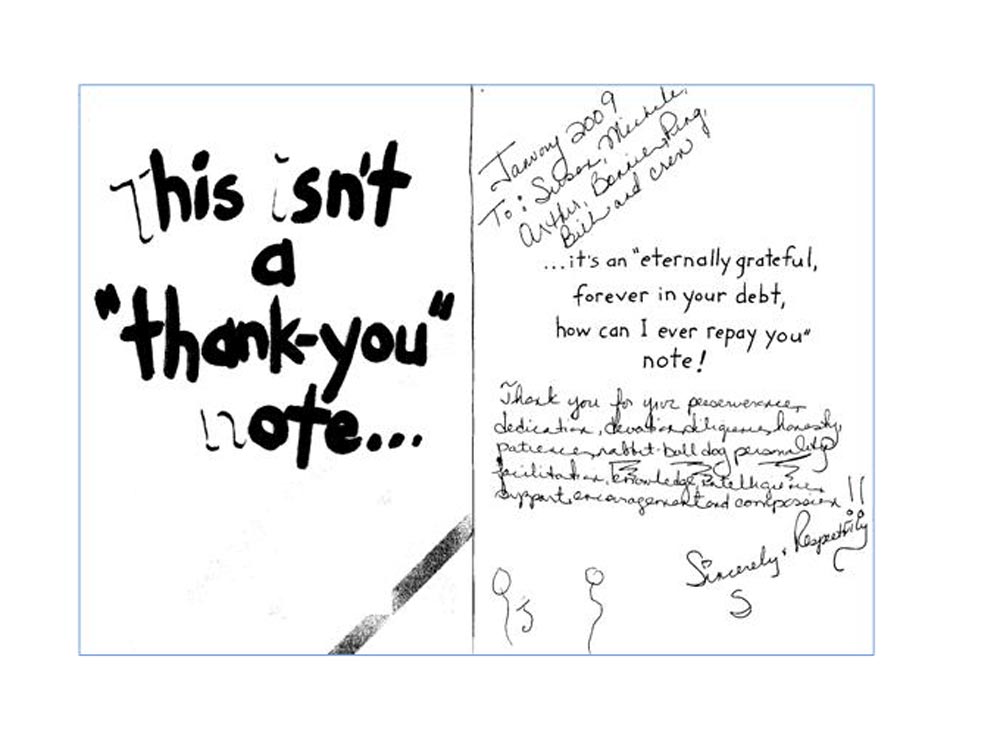 This isn't
a
"thank-you"
note...
January 2009
To: Susan, Michele,
Arthur, Bonnie, Ping,
Bill and crew
...it's an "eternally grateful,
forever in your debt,
how can I ever repay you"
note!
Thank you for your perserverence,
dedication, devotion, diligence, honesty,
patience, rabbit-bull dog personality,
facilitation, knowledge, intelligence,
support, encouragement and compassion!!
Sincerely, Respectfully
S
J